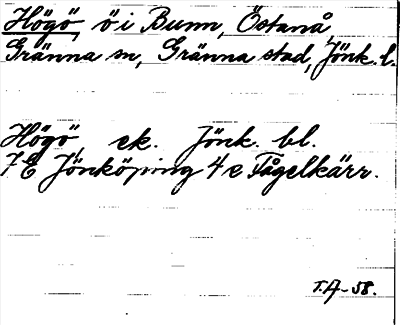 Högö, ö i Bunn, Östanå
Gränna sn, Gränna stad, Jönk. l.
Högö, ek. Jönk. bl.
7E Jönköping 4e Fågelkärr.
T.A-58.